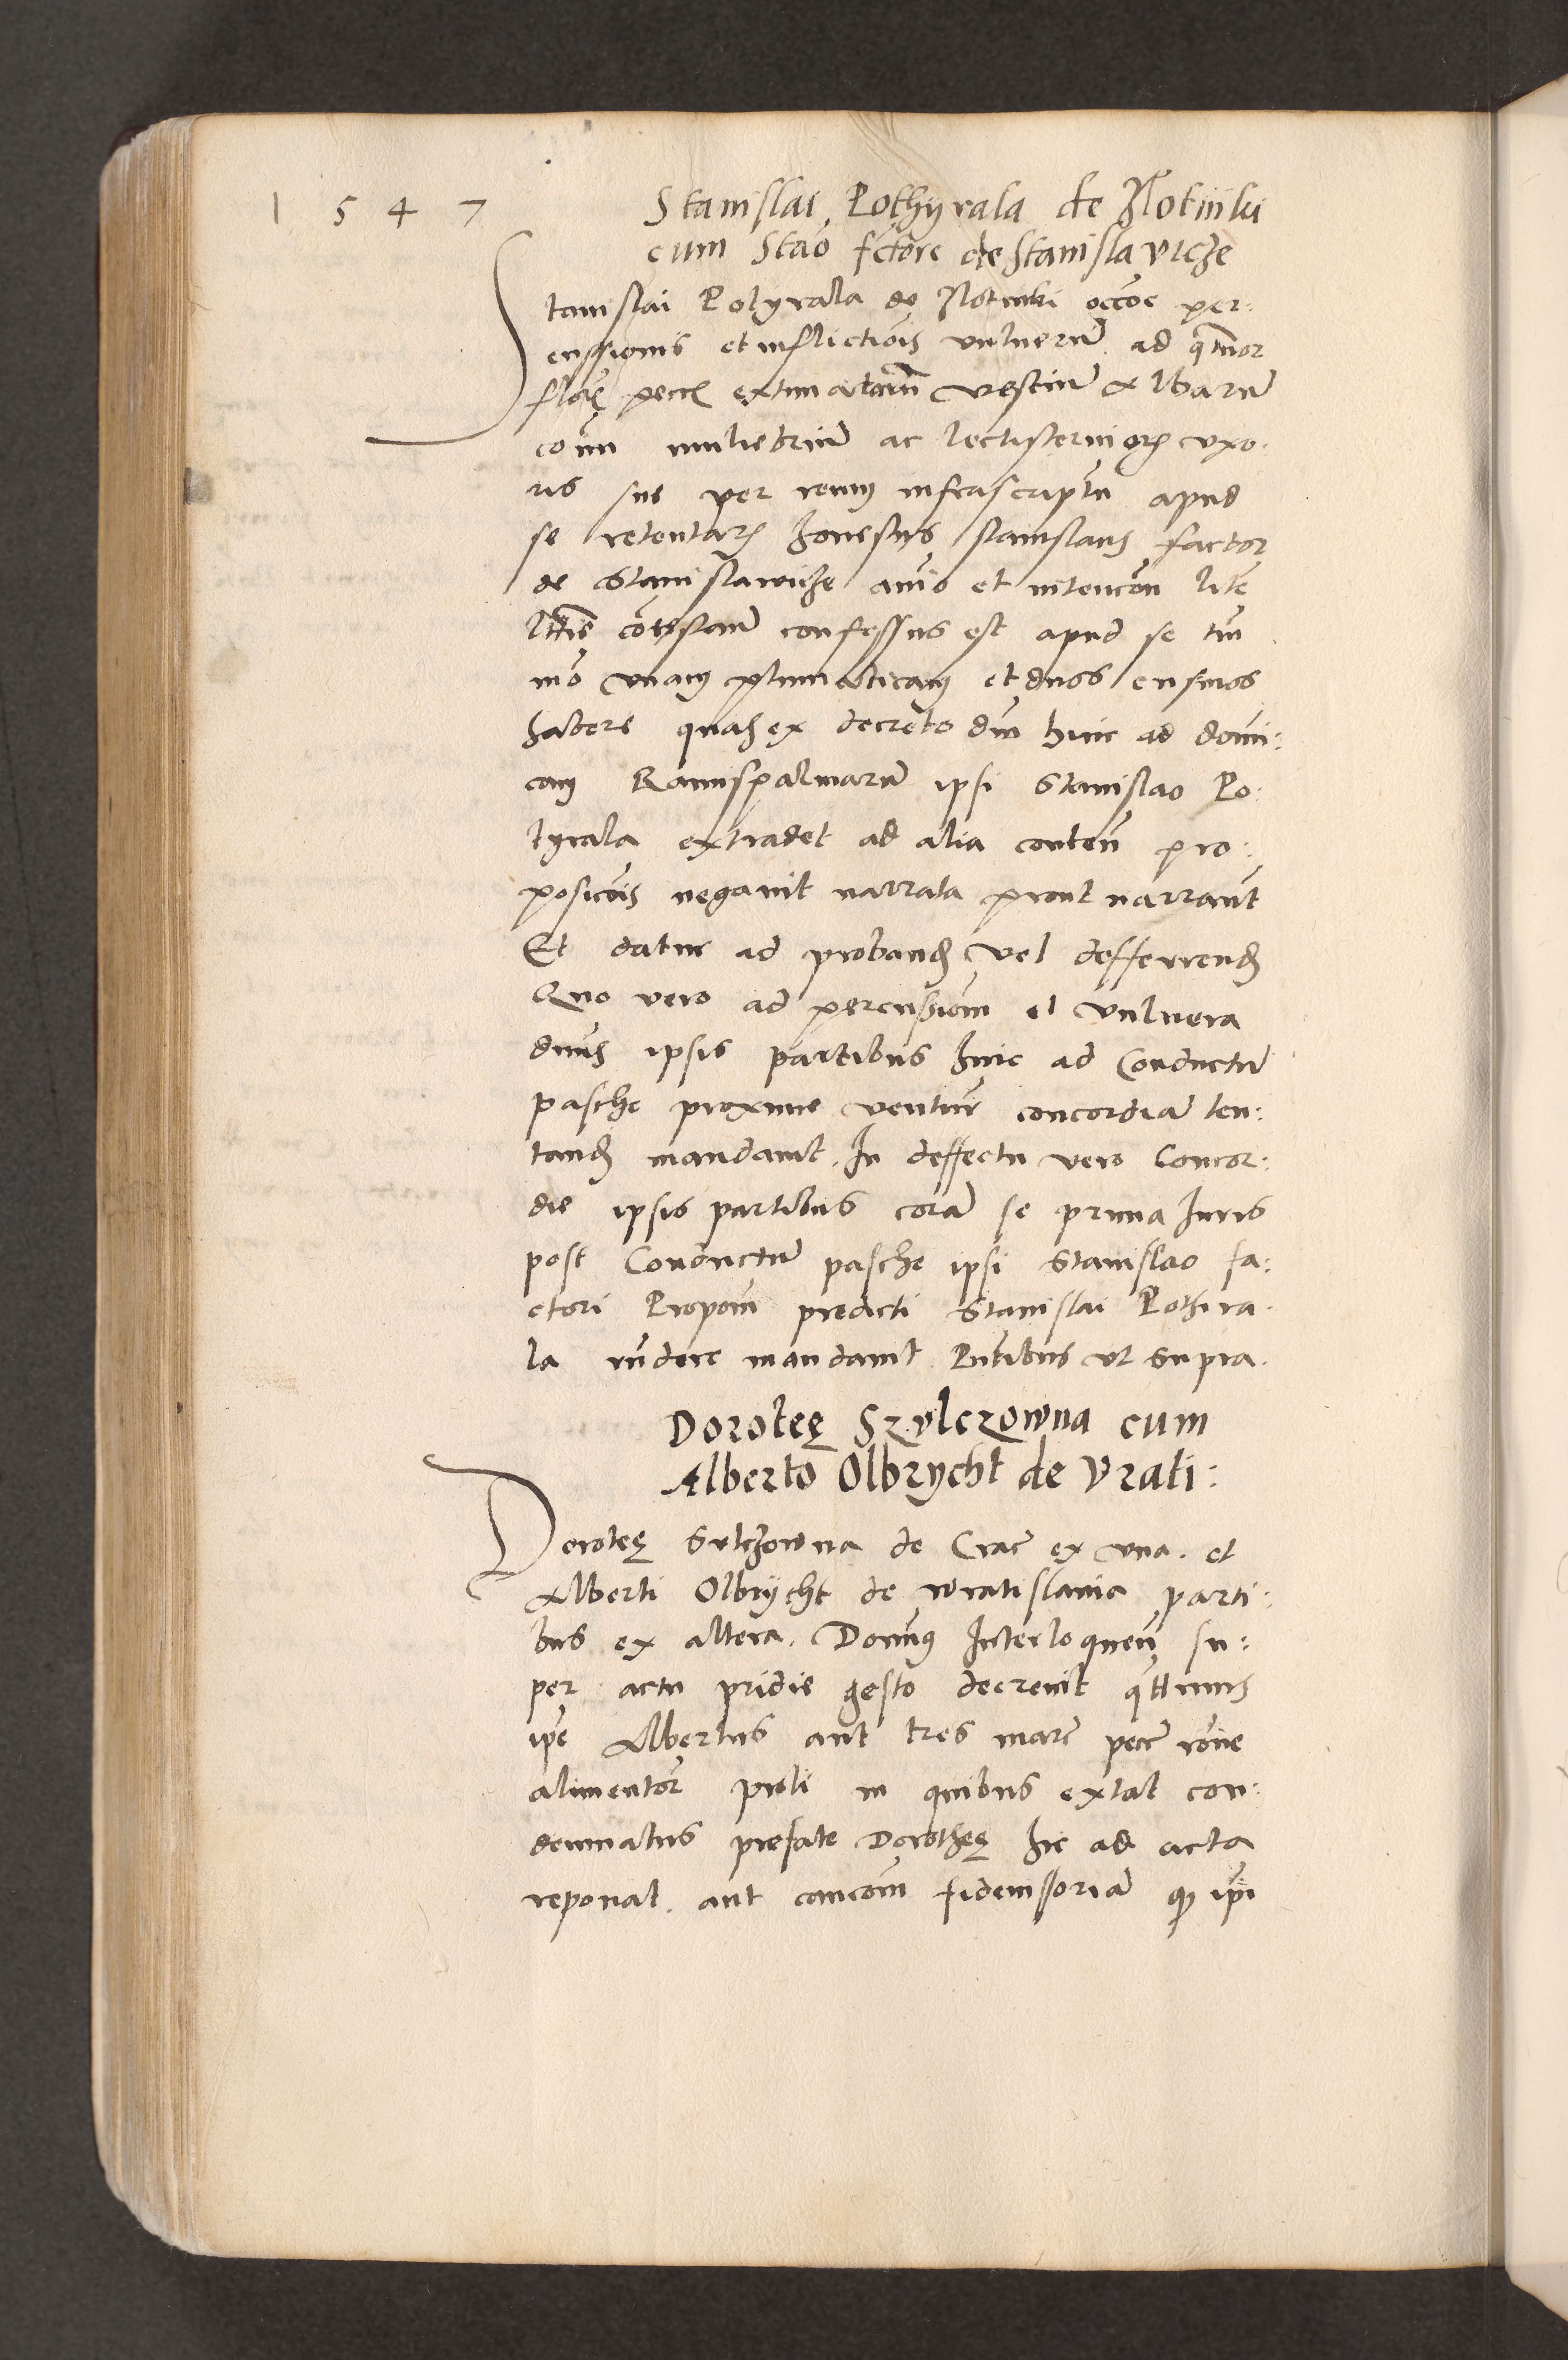 1 5 4 7
Stanislai Pothyrala de Plotniki
cum Stao fctore de Stanislavicze
Stanislai Potyrala de Plotniki occoe per:
cussionis et inflictiois vulnerū ad qtuor
flor pecc extimatarū vestiū albarū
coim muliebriū ac lectisternior uxo:
ris sue per reum infrascriptū apud
se retentar honestus stanislaus factor
de Stanislawicze aio et intencōn litē
lttie cōtestan confessus est apud se tm
mō unam plumaticam et duos ensinos
habere quas ex decreto dni hinc ad domi:
cam Ramispalmarū ipsi Stanislao Po:
tyrala extradet ad alia conten pro:
posicois negavit narrata prout narrant
Et datur ad proband vel defferrend
Quo vero ad percussiom et vulnera
dnus ipsis partibus hinc ad Conductū
pasche proxime ventur concordiā ten:
tand mandavit. In deffectu vero Concor:
die ipsis partibus corā se prima Iuris
post Conductū pasche ipsi Stanislao fa:
ctori Proponi predicti Stanislai Pothira:
la rndere mandavit Pntibus ut supra.
Doroteę Szulczowna cum
Alberto Olbrycht de Vrati:
Doroteę Sulczowna de Crac ex una. et
Alberti Olbrycht de wratislavia parti:
bus ex altera. Dominus Interloquen su:
per actu pridie gesto decrevit qttinus
ipe Albertus aut tres marc pecc rōne
alimentor proli in quibus extat con:
demnatus prefate Dorotheę hic ad acta
reponat. aut caucom fideiussoriā q ipi